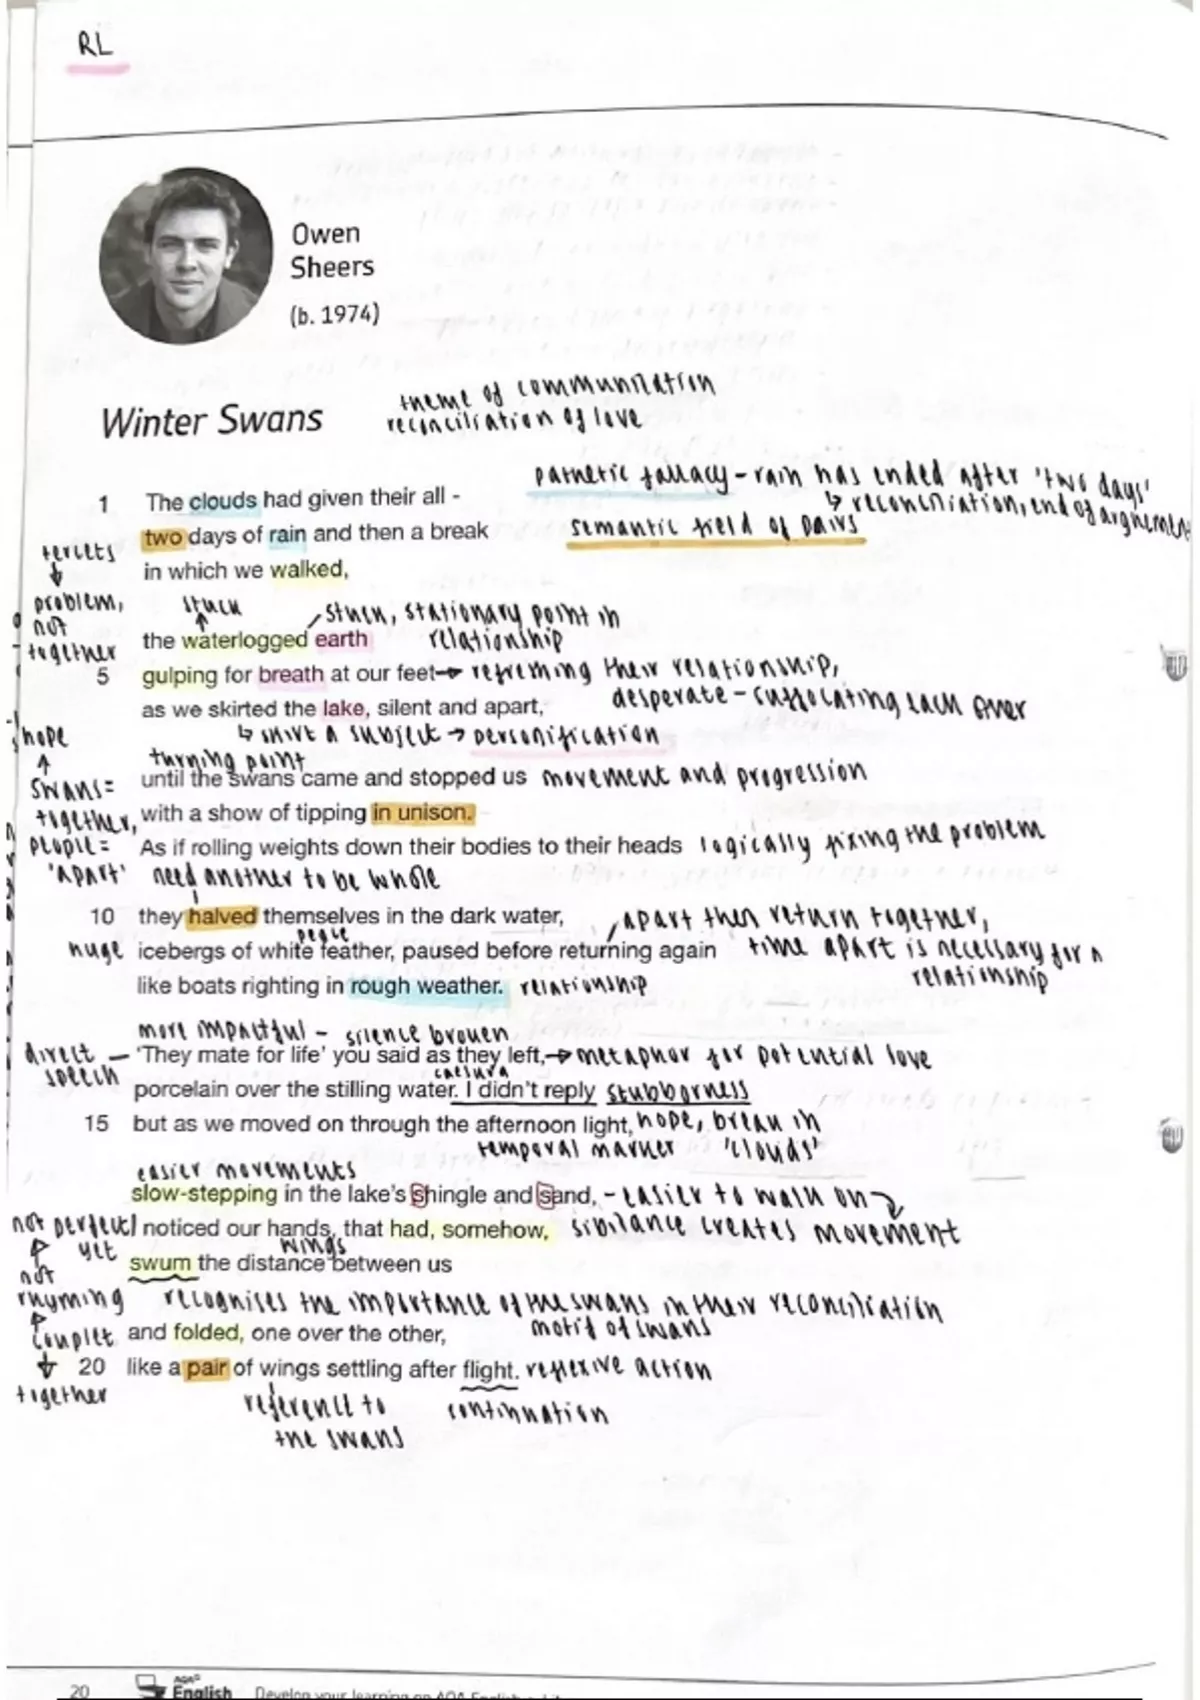 RL
Owen
Sheers
(b. 1974)
theme of communication
Winter Swans
reconciliation of love
pathetic fallacy - rain has ended after 'two days'
↳ reconciliation, end of argument
1 The clouds had given their all -
two days of rain and then a break
semantic field of pairs
in which we walked,
tercets
↓
problem,
not
together
stuck
↑
stuck, stationary point in
relationship
the waterlogged earth
5 gulping for breath at our feet → referring their relationship,
desperate - suffocating each other
as we skirted the lake, silent and apart,
↳ shift in subject → personification
hope
↑
swans =
together,
people =
'apart'
turning point
until the swans came and stopped us movement and progression
with a show of tipping in unison.
As if rolling weights down their bodies to their heads logically fixing the problem
need another to be whole
10 they halved themselves in the dark water,
apart then return together,
time apart is necessary for a
relationship
peace
huge icebergs of white feather, paused before returning again
like boats righting in rough weather. relationship
more impactful - silence broken
direct speech – 'They mate for life' you said as they left, → metaphor for potential love
caesura
porcelain over the stilling water. I didn't reply stubborness
15 but as we moved on through the afternoon light, hope, break in
temporal marker 'clouds'
easier movements
slow-stepping in the lake's shingle and sand, - easier to walk on
not perfect I noticed our hands, that had, somehow, sibilance creates movement
yet
wings
swum the distance between us
not
rhyming recognises the importance of the swans in their reconciliation
motif of swans
couplet and folded, one over the other,
↓
together
20 like a pair of wings settling after flight. reflexive action
reference to
the swans
continuation
20 AQA English Develop your learning on AQA English